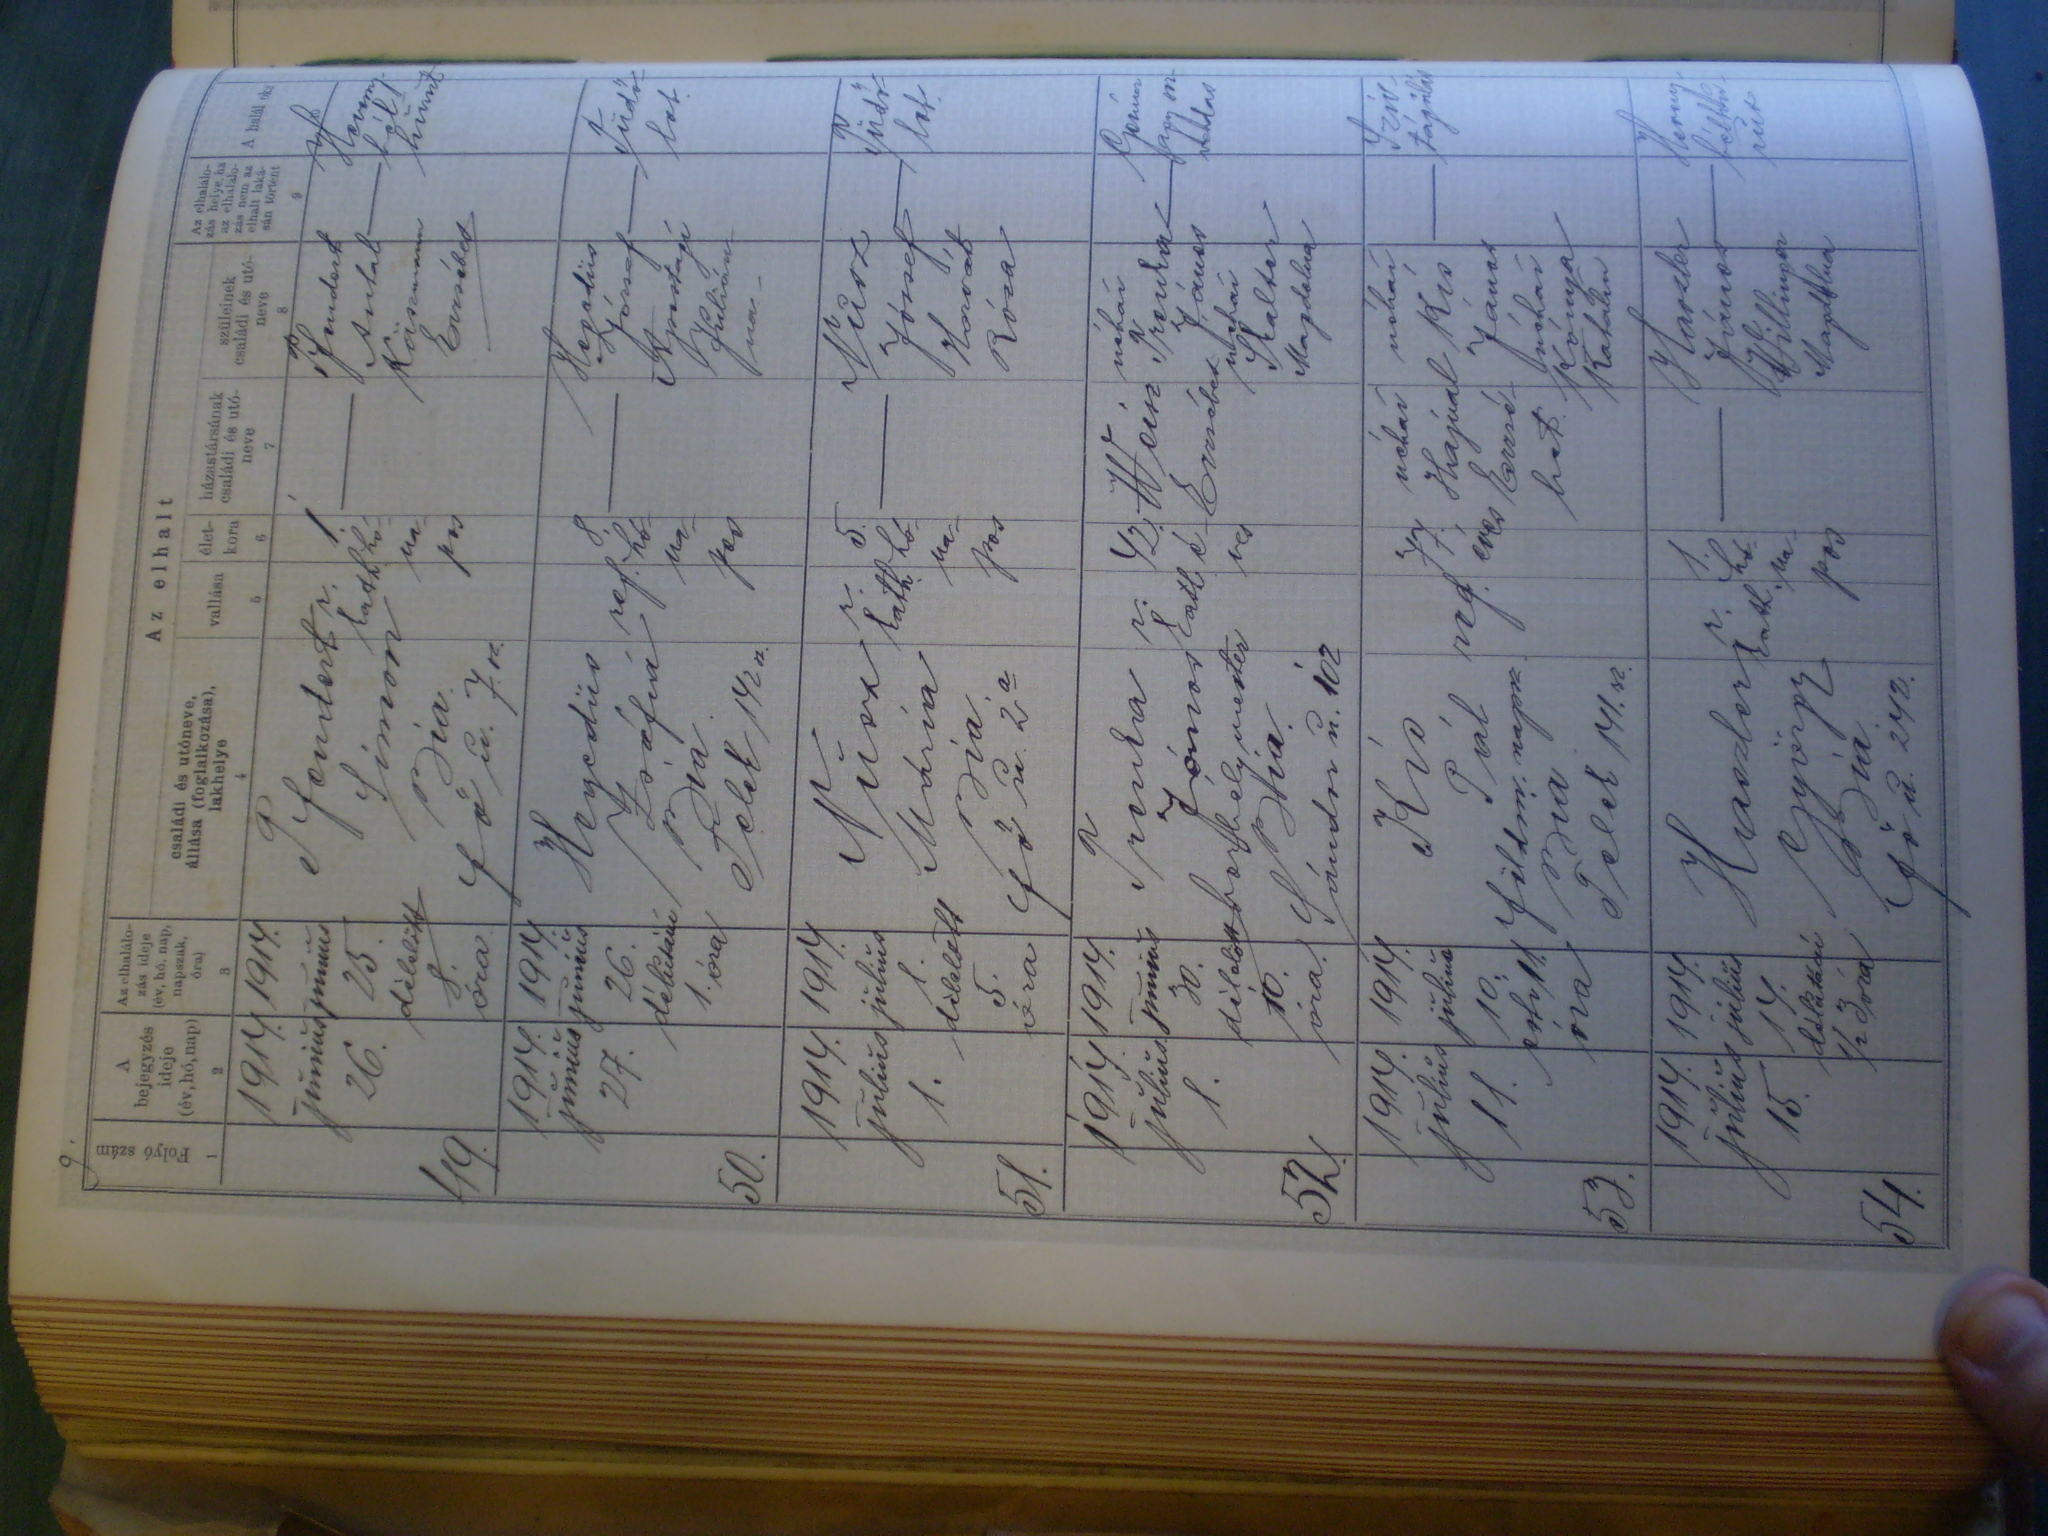 Az elhalt
Folyó szám
A bejegyzés ideje (év, hó, nap)
Az elhalálozás ideje (év, hó, nap, napszak, óra)
családi és utóneve, állása (foglalkozása), lakhelye
vallása
életkora
házastársának családi és utóneve
szüleinek családi és utóneve
Az elhalálozás helye, ha az elhalálozás nem az elhalt lakásán történt
A halál oka
1
2
3
4
5
6
7
8
9
49.
1914.
június
26.
1914.
június
25.
délelőtt
8.
óra
Simon
Bia
Fő u. 7 sz.
r.
kath.
1.
hó-
na-
pos
Antal
Erzsébet
50.
1914.
június
27.
1914.
június
26.
délután
1. óra
Hegedüs
Zsófia
Bia
Telek 142 sz.
ref.
8
hó-
na-
pos
Hegedüs
József
Julián-
na
Tüdő-
lob.
51.
1914.
július
1.
1914.
július
1.
délelőtt
5.
óra
Mária
Bia
Fő u. 2 a
r.
kath.
5.
hó-
na-
pos
József
Horvát
Róza
Tüdő-
lob.
52.
1914.
július
1.
1914.
június
30.
délelőtt
10.
óra.
János
borbélymester
Bia.
Sándor u. 102
r.
kath.
42.
é-
ves
Erzsébet
néhai
János
néhai
Magdolna
53.
1914.
július
11.
1914.
július
10.
este 11.
óra
Kis
Pál
földm. napsz.
Bia
Telek 141. sz.
ref.
77.
éves
néhai
Hajdal
Erzsé-
bet.
néhai
Kis
János
néhai
Kónya
Katalin
54.
1914.
július
15.
1914.
július
14.
délután
1/2 3 óra
Haszler
György
Bia
Fő u. 242.
r.
kath.
1.
hó-
na-
pos
Haszler
János
Willinger
Magdolna